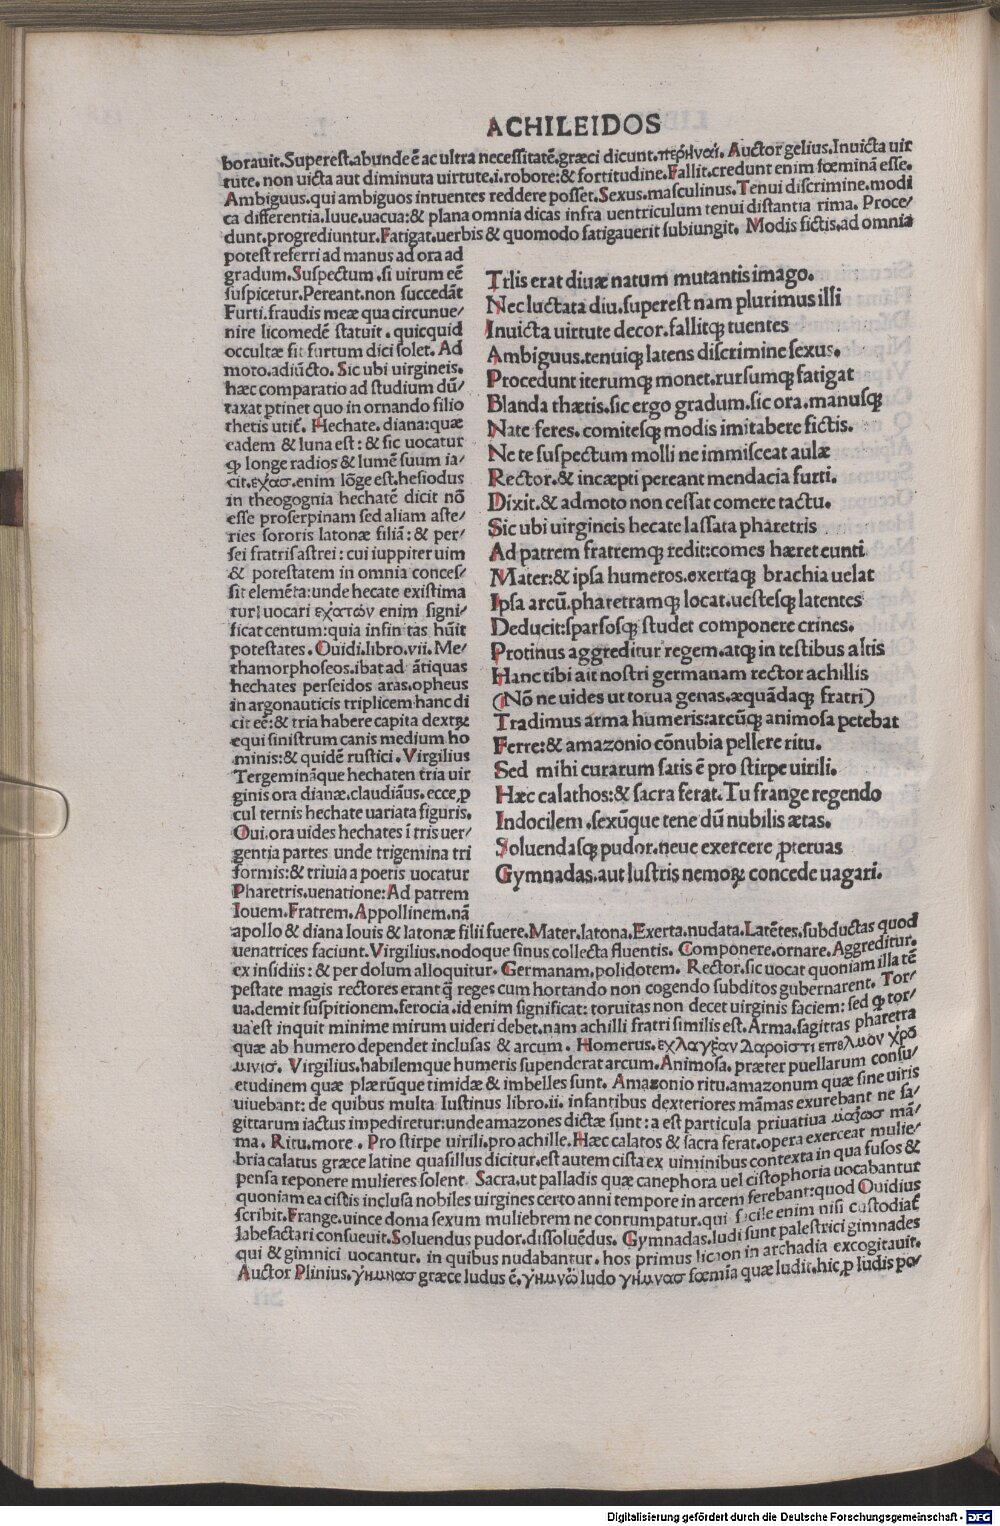 ACHILEIDOS
borauit. Superest. abunde ē ac ultra necessitatē. græci dicunt. Auctor gelius. Inuicta uir
tute. non uicta aut diminuta uirtute. i. robore: & fortitudine. Fallit. credunt enim fœminā esse.
Ambiguus. qui ambiguos intuentes reddere posset. Sexus. masculinus. Tenui discrimine. modi
ca differentia. Iuue. uacua: & plana omnia dicas infra uentriculum tenui distantia rima. Proce/
dunt. progrediuntur. Fatigat. uerbis & quomodo fatigauerit subiungit. Modis fictis. ad omnia
potest referri ad manus ad ora ad
gradum. Suspectum. si uirum eē
suspicetur. Pereant. non succedāt
Furti. fraudis meæ qua circunue/
nire licomedē statuit. quicquid
occultæ fit furtum dici solet. Ad
moto. adiūcto. Sic ubi uirgineis.
hæc comparatio ad studium dū/
taxat ptinet quo in ornando filio
thetis utit̄. Hechate. diana: quæ
eadem & luna est: & sic uocatur
ꝙ longe radios & lumē suum ia/
cit. εχασ. enim lōge est. hesiodus
in theogognia hechatē dicit nō
esse proserpinam sed aliam aste/
ries sororis latonæ filiā: & per/
sei fratris astrei: cui iuppiter uim
& potestatem in omnia conces/
sit elemēta: unde hecate existima
tur uocari εχατόν enim signi/
ficat centum: quia infinitas hūit
potestates. Ouidi. libro. vii. Me/
thamorphoseos. ibat ad ātiquas
hechates perseidos aras. opheus
in argonauticis triplicem hanc di
cit eē: & tria habere capita dextꝝ
equi sinistrum canis medium ho
minis: & quidē rustici. Virgilius
Tergemināque hechaten tria uir
ginis ora dianæ. claudiāus. ecce ꝓ
cul ternis hechate uariata figuris.
Oui. ora uides hechates ī tris uer/
gentia partes unde trigemina tri
formis: & triuia a poetis uocatur
Pharetris. uenatione: Ad patrem
Iouem. Fratrem. Appollinem. nā
Trlis erat diuæ natum mutantis imago.
Nec luctata diu. superest nam plurimus illi
Inuicta uirtute decor. fallitqꝫ tuentes
Ambiguus. tenuiqꝫ latens discrimine sexus.
Procedunt iterumqꝫ monet. rursumqꝫ fatigat
Blanda thætis. sic ergo gradum. sic ora. manusqꝫ
Nate feres. comitesqꝫ modis imitabere fictis.
Ne te suspectum molli ne immisceat aulæ
Rector. & incæpti pereant mendacia furti.
Dixit. & admoto non cessat comere tactu.
Sic ubi uirgineis hecate lassata pharetris
Ad patrem fratremqꝫ redit: comes hæret eunti
Mater: & ipsa humeros. exertaqꝫ brachia uelat
Ipsa arcū. pharetramqꝫ locat. uestesqꝫ latentes
Deducit: sparsosqꝫ studet componere crines.
Protinus aggreditur regem. atqꝫ in testibus altis
Hanc tibi ait nostri germanam rector achillis
(Nō ne uides ut torua genas. æquādaqꝫ fratri)
Tradimus arma humeris: arcūqꝫ animosa petebat
Ferre: & amazonio cōnubia pellere ritu.
Sed mihi curarum satis ē pro stirpe uirili.
Hæc calathos: & sacra ferat. Tu frange regendo
Indocilem. sexūque tene dū nubilis ætas.
Soluendasqꝫ pudor. neue exercere ꝓteruas
Gymnadas. aut lustris nemoꝝ concede uagari.
apollo & diana Iouis & latonæ filii fuere. Mater. latona. Exerta. nudata. Latētes. subductas quod
uenatrices faciunt. Virgilius. nodoque sinus collecta fluentis. Componere. ornare. Aggreditur.
ex insidiis: & per dolum alloquitur. Germanam. polidotem. Rector. sic uocat quoniam illa tē
pestate magis rectores erant ꝙ̄ reges cum hortando non cogendo subditos gubernarent. Tor/
ua. demit suspitionem. ferocia. id enim significat: toruitas non decet uirginis faciem: sed ꝙ tor/
ua est inquit minime mirum uideri debet. nam achilli fratri similis est. Arma. sagittas pharetra
quæ ab humero dependet inclusas & arcum. Homerus.
Virgilius. habilemque humeris supenderat arcum. Animosa. præter puellarum consu/
etudinem quæ plærūque timidæ & imbelles sunt. Amazonio ritu. amazonum quæ sine uiris
uiuebant: de quibus multa Iustinus libro. ii. infantibus dexteriores māmas exurebant ne sa/
gittarum iactus impediretur: unde amazones dictæ sunt: a est particula priuatiua μαζωσ mā/
ma. Ritu. more. Pro stirpe uirili. pro achille. Hæc calatos & sacra ferat. opera exerceat mulie/
bria calatus græce latine quasillus dicitur. est autem cista ex uiminibus contexta in qua fusos &
pensa reponere mulieres solent. Sacra. ut palladis quæ canephora uel cistophoria uocabantur
quoniam ea cistis inclusa nobiles uirgines certo anni tempore in arcem ferebant: quod Ouidius
scribit. Frange. uince doma sexum muliebrem ne conrumpatur. qui facile enim nisi custodiat̄
labefactari consueuit. Soluendus pudor. dissoluēdus. Gymnadas. ludi sunt palestrici gimnades
qui & gimnici uocantur. in quibus nudabantur. hos primus licaon in archadia excogitauit.
Auctor Plinius. γήμνασ græce ludus ē. γήμνῶ ludo γήμνασ fœmīa quæ ludit. hic ꝓ ludis po/
Digitalisierung gefördert durch die Deutsche Forschungsgemeinschaft - DFG